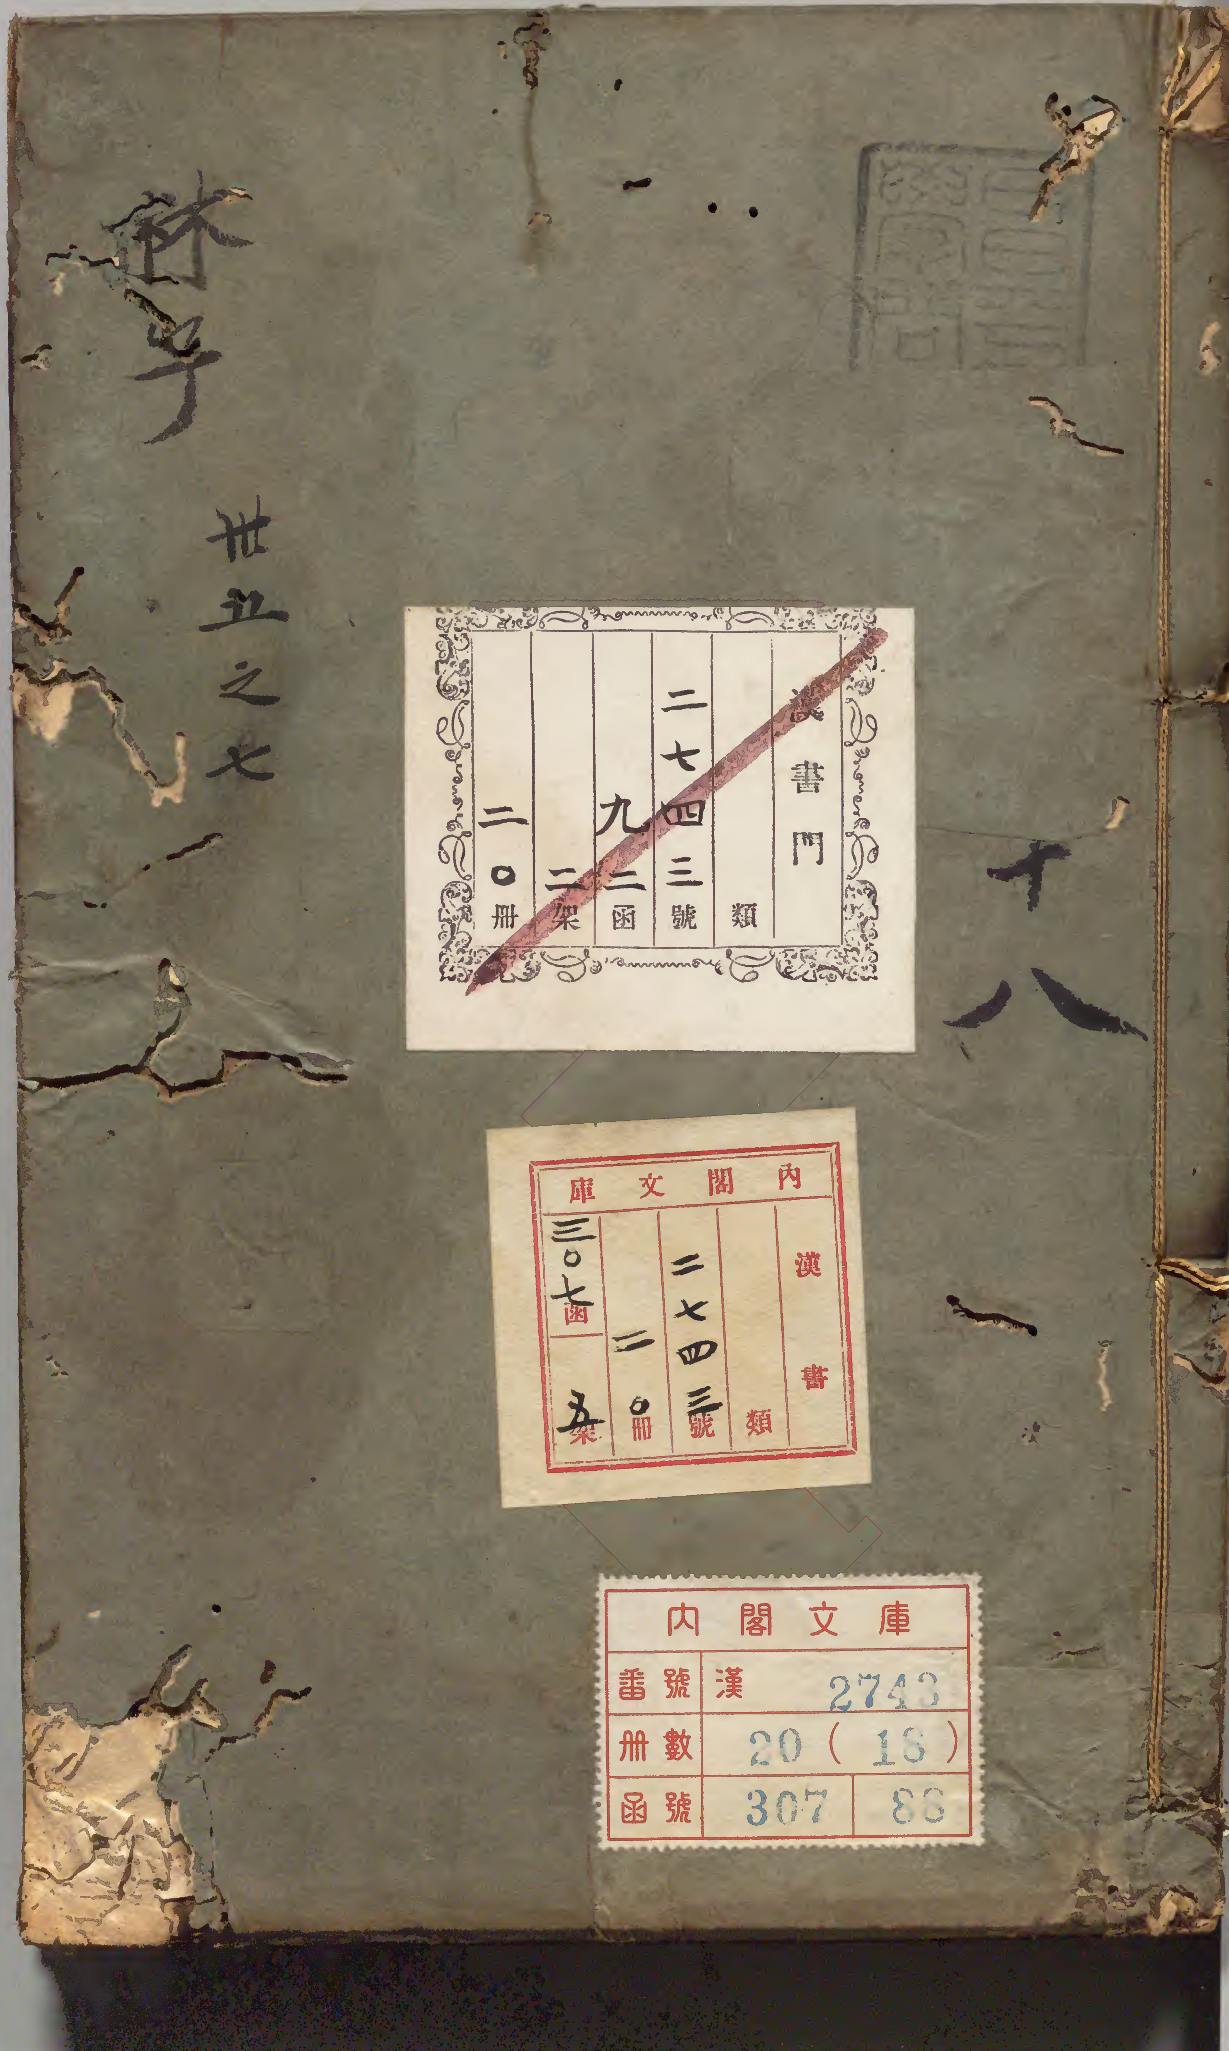 林子
卅五之七
十八
漢書門
類
二七四三號
九二函
二架
二〇冊
內閣文庫
漢書
類
二七四三號
二〇冊
三〇七函
五架
內閣文庫
番號 漢 2743
冊數 20 (18)
函號 307 88